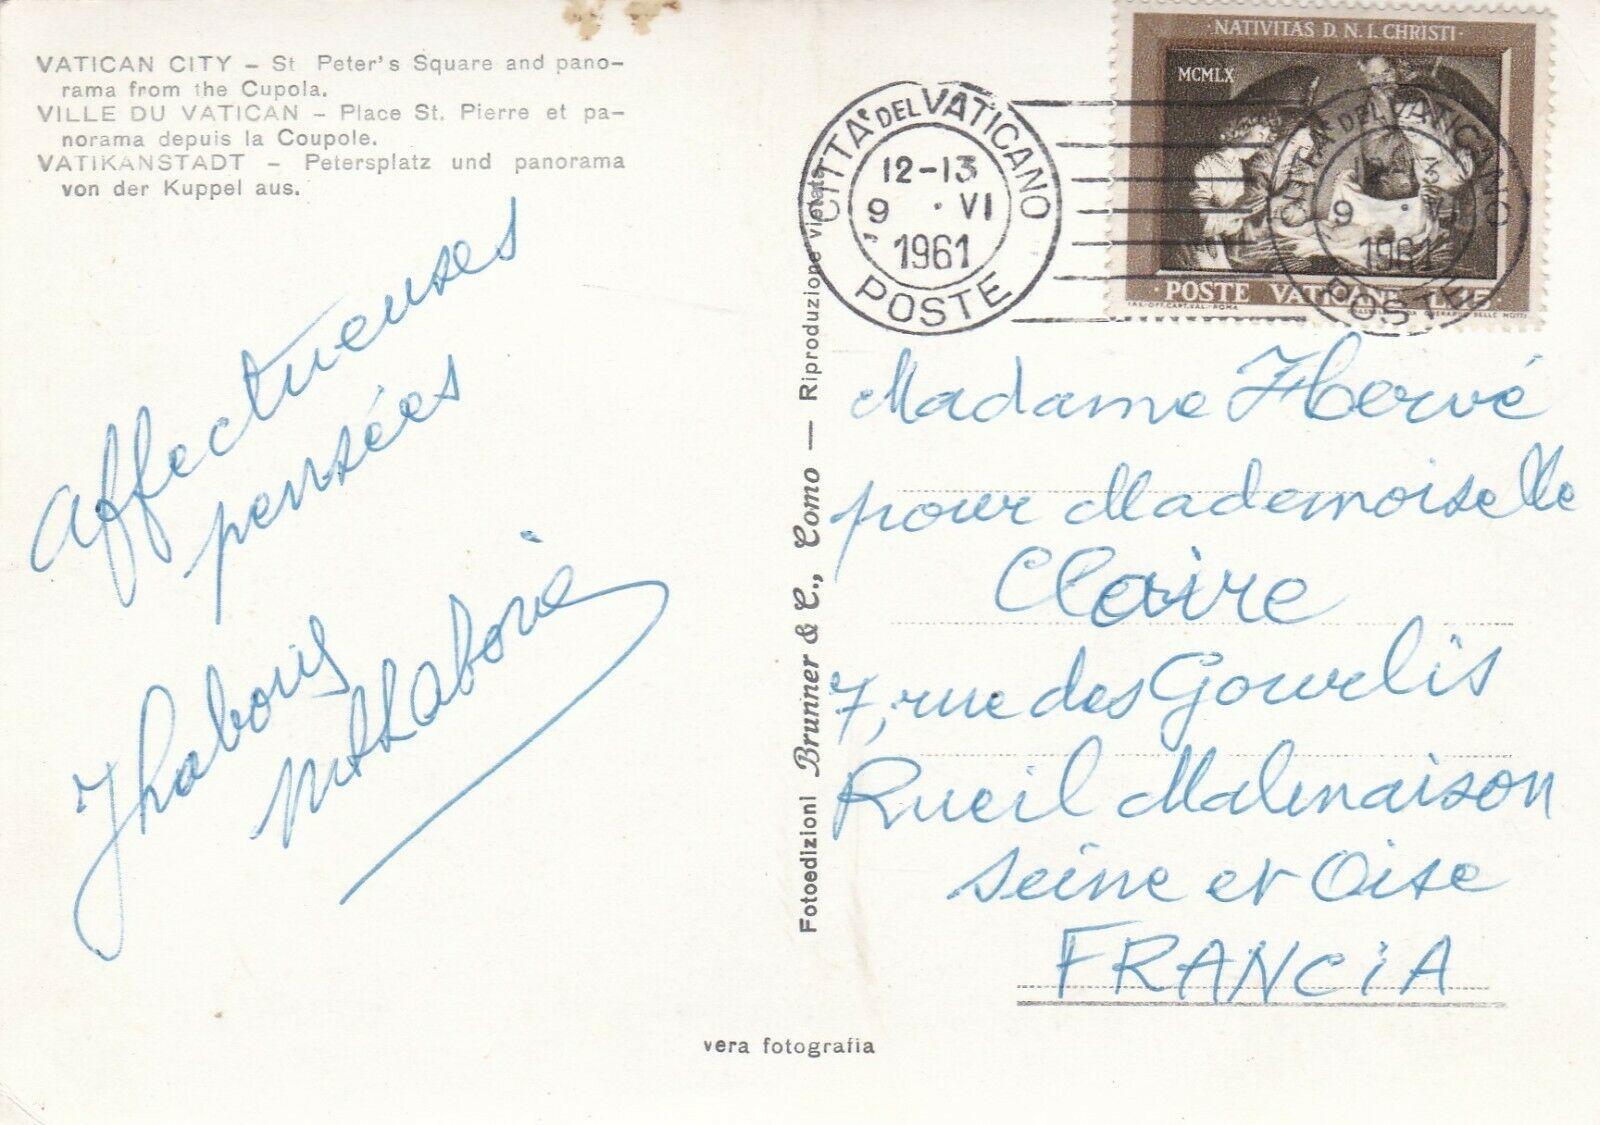 VATICAN CITY – St Peter's Square and pano-
rama from the Cupola.
VILLE DU VATICAN – Place St. Pierre et pa-
norama depuis la Coupole.
VATIKANSTADT – Petersplatz und panorama
von der Kuppel aus.
affectueuses
pensées
Fotoedizioni Brunner & C., Como — Riproduzione vietata
CITTA' DEL VATICANO
12-13
9 · VI
1961
POSTE
· NATIVITAS D. N. I. CHRISTI ·
MCMLX
· POSTE VATICANE
CITTA' DEL VATICANO
9 · VI
1961
POSTE
Madame Hervé
pour Mademoiselle
Claire
7, rue des Gourlis
Rueil Malmaison
Seine et Oise
FRANCIA
vera fotografia